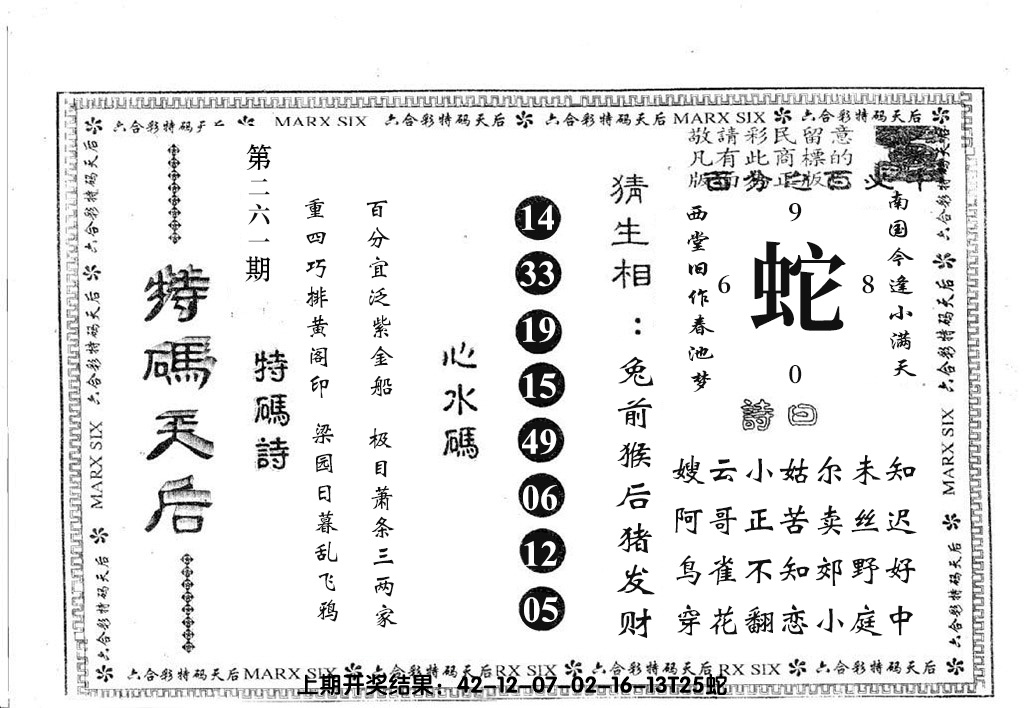 六合彩特码天后 MARX SIX 六合彩特码天后 六合彩特码天后 MARX SIX 六合彩特码天后
敬請彩民留意
凡有此商標的
版面为正版
南国今逢小满天
9
6
蛇
8
0
西堂旧作春池梦
詩曰
嫂云小姑尔未知
阿哥正苦卖丝迟
鸟雀不知郊野好
穿花翻恋小庭中
猜生相：兔前猴后猪发财
14
33
19
15
49
06
12
05
心水碼
百分宜泛紫金船 极目萧条三两家
重四巧排黄阁印 梁园日暮乱飞鸦
特碼詩
第二六一期
特碼天后
六合彩特码天后 MARX SIX 六合彩特码天后
六合彩特码天后 MARX SIX 六合彩特码天后
六合彩特码天后 MARX SIX 六合彩特码天后 RX SIX 六合彩特码天后 RX SIX 六合彩特码天后
上期开奖结果：42-12-07-02-16-13T25蛇